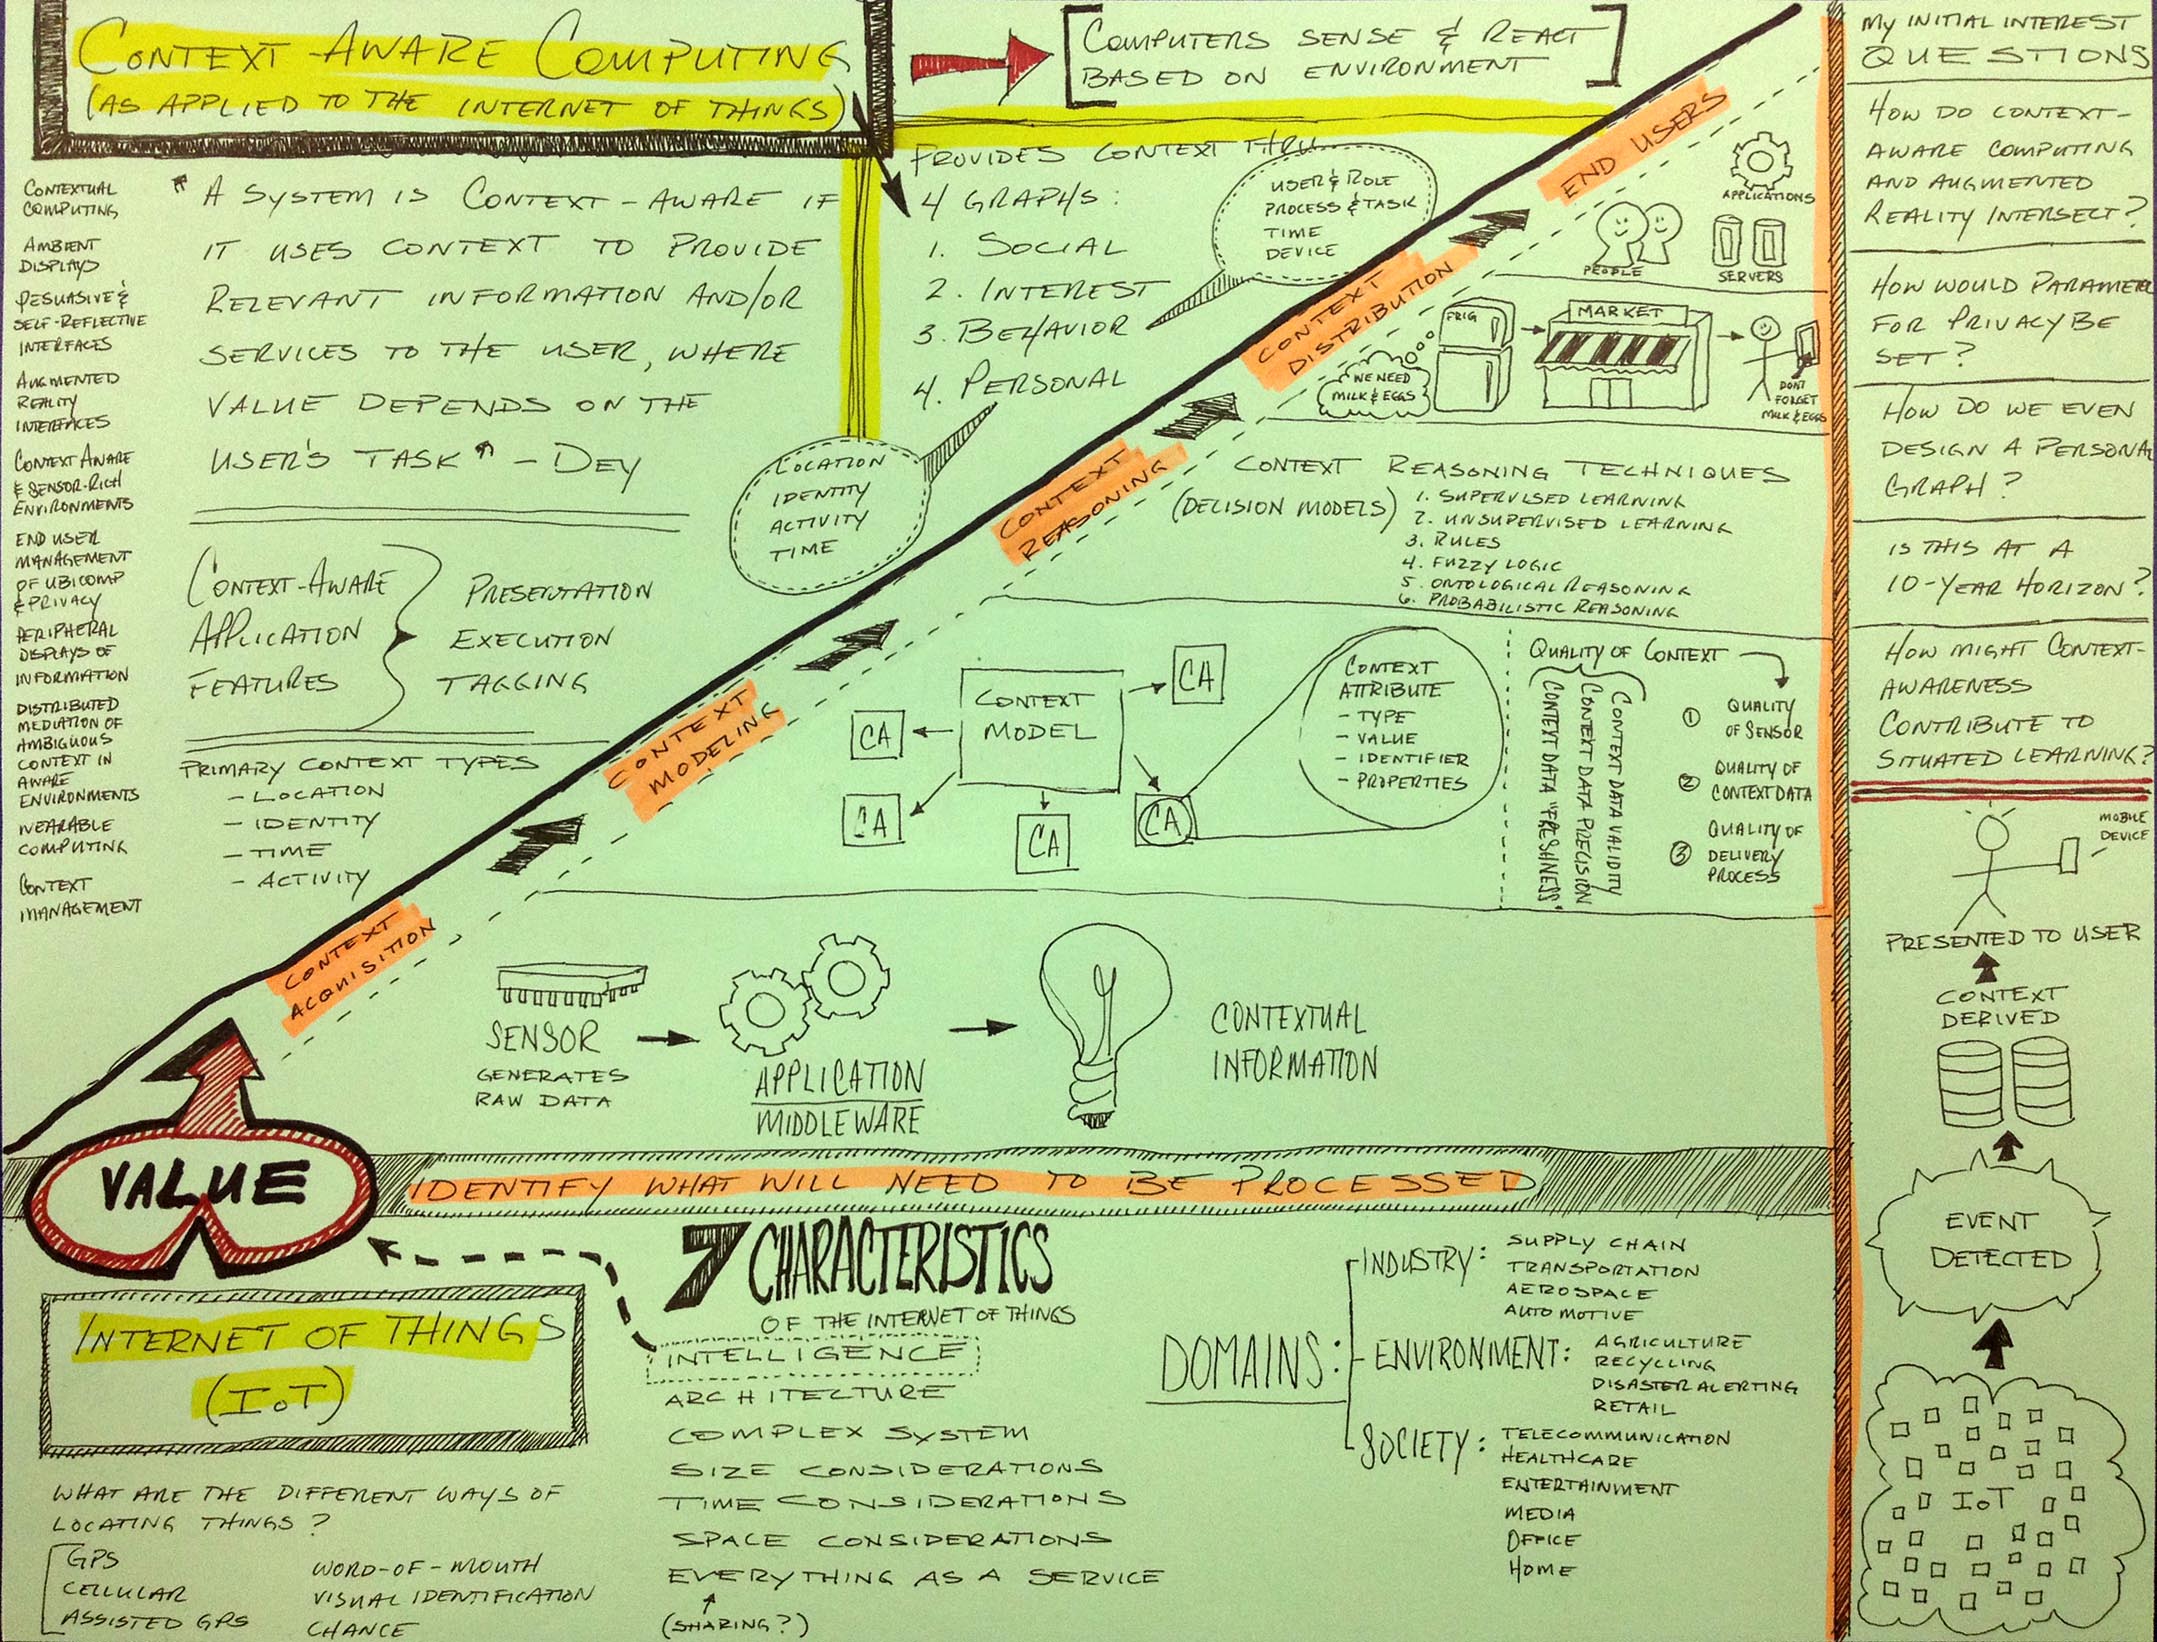 CONTEXT-AWARE COMPUTING
(AS APPLIED TO THE INTERNET OF THINGS)
COMPUTERS SENSE & REACT
BASED ON ENVIRONMENT
CONTEXTUAL
COMPUTING
AMBIENT
DISPLAYS
PESUASIVE &
SELF-REFLECTIVE
INTERFACES
AUGMENTED
REALITY
INTERFACES
CONTEXT AWARE
& SENSOR-RICH
ENVIRONMENTS
END USER
MANAGEMENT
OF UBICOMP
& PRIVACY
PERIPHERAL
DISPLAYS OF
INFORMATION
DISTRIBUTED
MEDIATION OF
AMBIGUOUS
CONTEXT IN
AWARE
ENVIRONMENTS
WEARABLE
COMPUTING
CONTEXT
MANAGEMENT
"A SYSTEM IS CONTEXT-AWARE IF
IT USES CONTEXT TO PROVIDE
RELEVANT INFORMATION AND/OR
SERVICES TO THE USER, WHERE
VALUE DEPENDS ON THE
USER'S TASK" - DEY
CONTEXT-AWARE
APPLICATION
FEATURES
PRESENTATION
EXECUTION
TAGGING
PRIMARY CONTEXT TYPES
- LOCATION
- IDENTITY
- TIME
- ACTIVITY
PROVIDES CONTEXT THRU
4 GRAPHS:
1. SOCIAL
2. INTEREST
3. BEHAVIOR
4. PERSONAL
USER & ROLE
PROCESS & TASK
TIME
DEVICE
LOCATION
IDENTITY
ACTIVITY
TIME
END USERS
APPLICATIONS
PEOPLE
SERVERS
CONTEXT
DISTRIBUTION
FRIG
WE NEED
MILK & EGGS
MARKET
DONT
FORGET
MILK & EGGS
CONTEXT
REASONING
CONTEXT REASONING TECHNIQUES
(DECISION MODELS)
1. SUPERVISED LEARNING
2. UNSUPERVISED LEARNING
3. RULES
4. FUZZY LOGIC
5. ONTOLOGICAL REASONING
6. PROBABILISTIC REASONING
CONTEXT
MODELING
CONTEXT
MODEL
CA
CA
CA
CA
CA
CONTEXT
ATTRIBUTE
- TYPE
- VALUE
- IDENTIFIER
- PROPERTIES
QUALITY OF CONTEXT
CONTEXT DATA VALIDITY
CONTEXT DATA PRECISION
CONTEXT DATA "FRESHNESS"
1 QUALITY
OF SENSOR
2 QUALITY OF
CONTEXT DATA
3 QUALITY OF
DELIVERY
PROCESS
CONTEXT
ACQUISITION
SENSOR
GENERATES
RAW DATA
APPLICATION
MIDDLEWARE
CONTEXTUAL
INFORMATION
VALUE
IDENTIFY WHAT WILL NEED TO BE PROCESSED
INTERNET OF THINGS
(IOT)
WHAT ARE THE DIFFERENT WAYS OF
LOCATING THINGS?
GPS
CELLULAR
ASSISTED GPS
WORD-OF-MOUTH
VISUAL IDENTIFICATION
CHANCE
7 CHARACTERISTICS
OF THE INTERNET OF THINGS
INTELLIGENCE
ARCHITECTURE
COMPLEX SYSTEM
SIZE CONSIDERATIONS
TIME CONSIDERATIONS
SPACE CONSIDERATIONS
EVERYTHING AS A SERVICE
(SHARING?)
DOMAINS:
INDUSTRY:
SUPPLY CHAIN
TRANSPORTATION
AEROSPACE
AUTOMOTIVE
ENVIRONMENT:
AGRICULTURE
RECYCLING
DISASTER ALERTING
RETAIL
SOCIETY:
TELECOMMUNICATION
HEALTHCARE
ENTERTAINMENT
MEDIA
OFFICE
HOME
MY INITIAL INTEREST
QUESTIONS
HOW DO CONTEXT-
AWARE COMPUTING
AND AUGMENTED
REALITY INTERSECT?
HOW WOULD PARAMETER
FOR PRIVACY BE
SET?
HOW DO WE EVEN
DESIGN A PERSONAL
GRAPH?
IS THIS AT A
10-YEAR HORIZON?
HOW MIGHT CONTEXT-
AWARENESS
CONTRIBUTE TO
SITUATED LEARNING?
MOBILE
DEVICE
PRESENTED TO USER
CONTEXT
DERIVED
EVENT
DETECTED
IOT